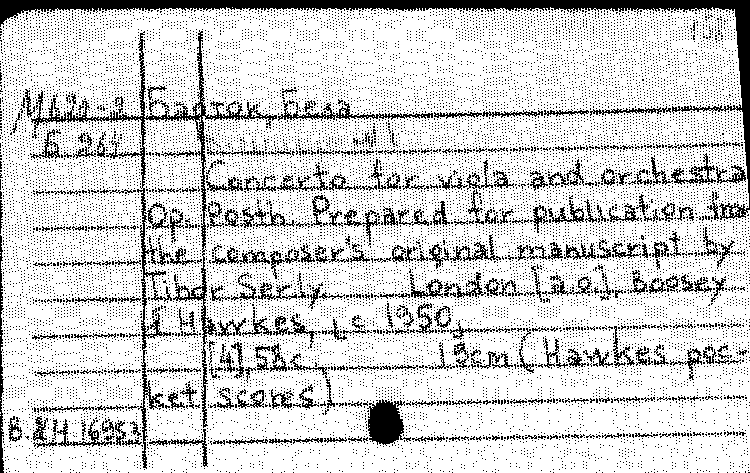 Барток, Бела
Б 264
Concerto for viola and orchestra
Op. Posth. Prepared for publication from
the composer's original manuscript by
Tibor Serly. London [a.o.], Boosey
& Hawkes, [c 1950]
[4], 53c. 19cm (Hawkes poc-
ket scores)
B. & H. 16953